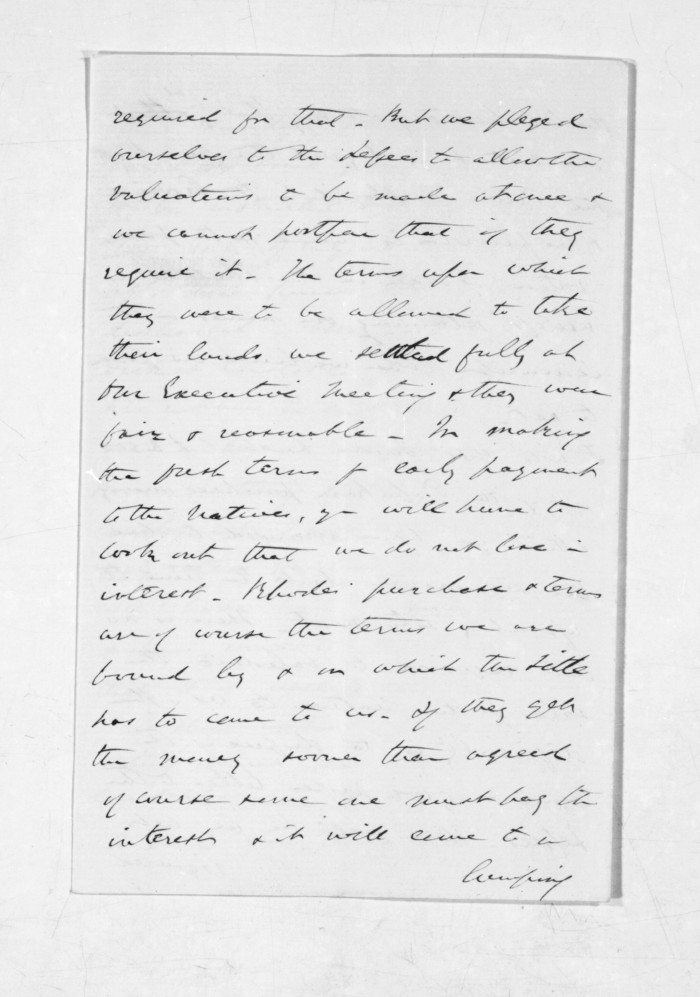 required for that - But we pleged
ourselves to the Lessees to allow the
valuations to be made at once &
we cannot postpone that if they
require it - The terms upon which
they were to be allowed to take
their lands we settled fully at
Our Executive Meeting & they were
fair & reasonable - In making
the fresh terms for early payment
to the Natives, you will have to
look out that we do not lose in
interest - Rhodes' purchase & terms
are of course the terms we are
bound by & on which the title
has to come to us - If they get
the money sooner than agreed
of course some one must pay the
interest & it will come to a